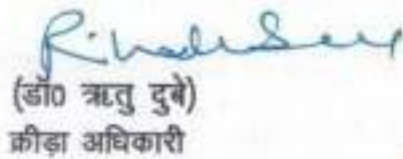 (डॉ0 ऋतु दुबे)
क्रीड़ा अधिकारी